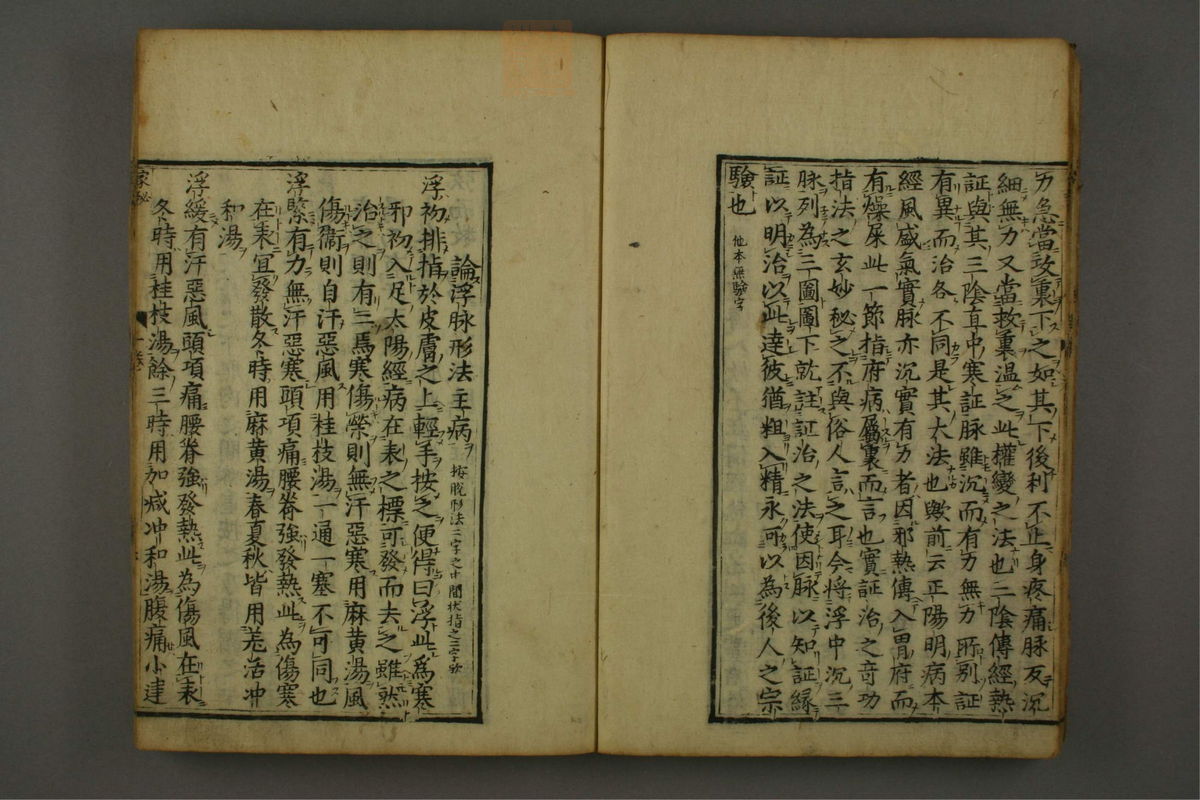 力急當攻裏下之如其下後利不止身疼痛脉反沉
細無力又當救裏温之此權變之法也三陰傳經熱
証與其三陰直中寒証脉雖沉而有力無力所别証
有異而治各不同是其大法也歟前云正陽明病本
經風盛氣實脉亦沉實有力者因邪熱傳入胃府而
有燥屎此一節指府病屬裏而言也實証治之竒功
指法之玄妙秘之不與俗人言之耳今將浮中沉三
脉列為三圖圖下就註証治之法使因脉以知証縁
証以明治以此達彼猶粗入精永可以為後人之宗
驗也 他本無驗字
論浮脉形法主病 按脱形法二字之十間状指之三字歟
浮初排指於皮膚之上輕手按之便得曰浮此為寒
邪初入足太陽經病在表之標可發而去之雖然
治之則有三焉寒傷榮則無汗惡寒用麻黄湯風
傷衞則自汗惡風用桂枝湯一通一塞不可同也
浮緊有力無汗惡寒頭項痛腰脊強發熱此為傷寒
在表宜發散冬時用麻黄湯春夏秋皆用羗活冲
和湯
浮緩有汗惡風頭項痛腰脊強發熱此為傷風在表
冬時用桂枝湯餘三時用加减冲和湯腹痛小建
家秘 一卷